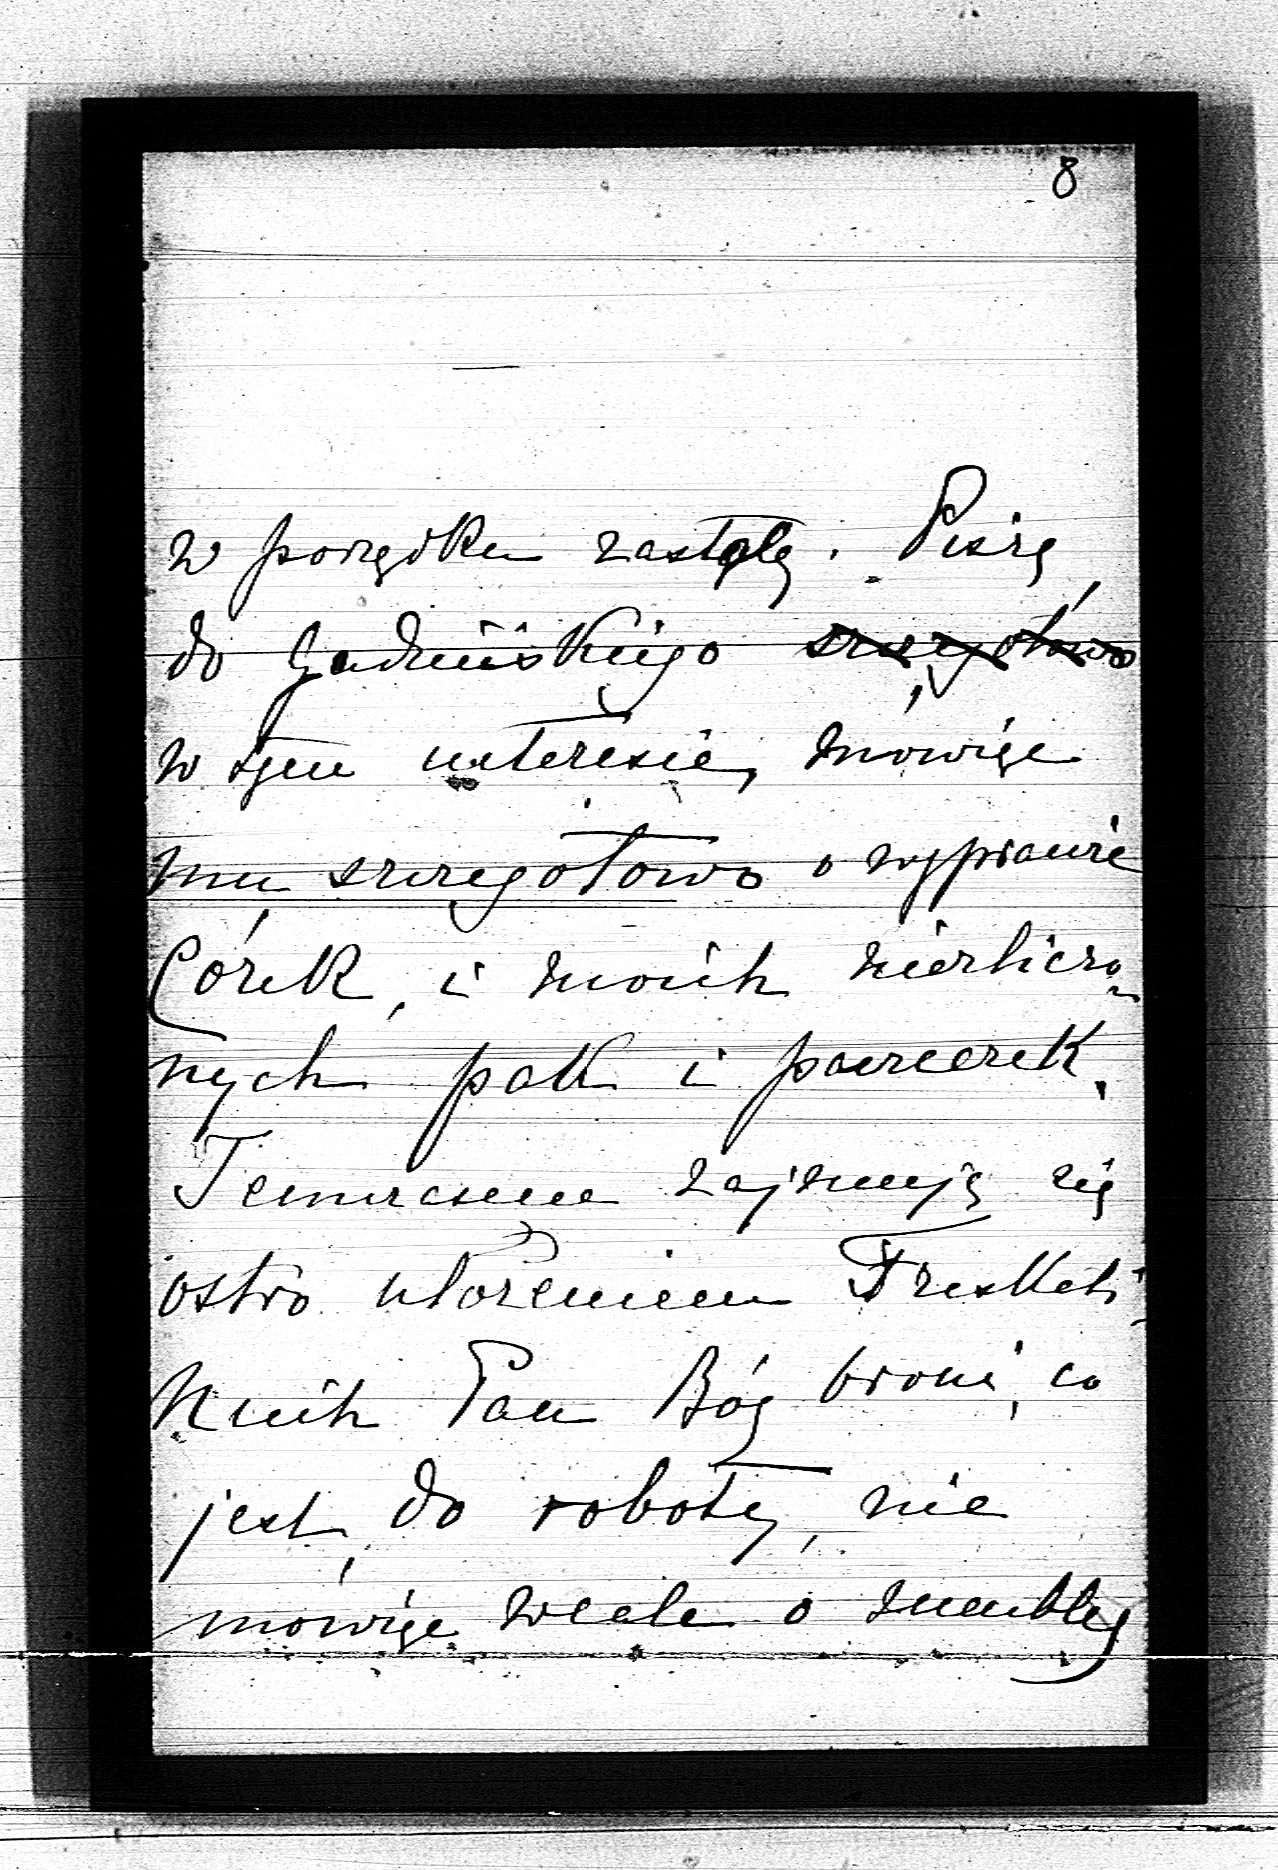 8
w porządku zastały. Piszę
do Gadzińskiego szczegółowo
w tym interesie, mówię
mu szczegółowo o wyprawie
Córek, i moich niezliczo
nych pak i paczeczek.
Tymczasem zajmuję się
ostro ułożeniem
Niech Pan Bóg broni, co
jest do roboty, nie
mówię wcale o